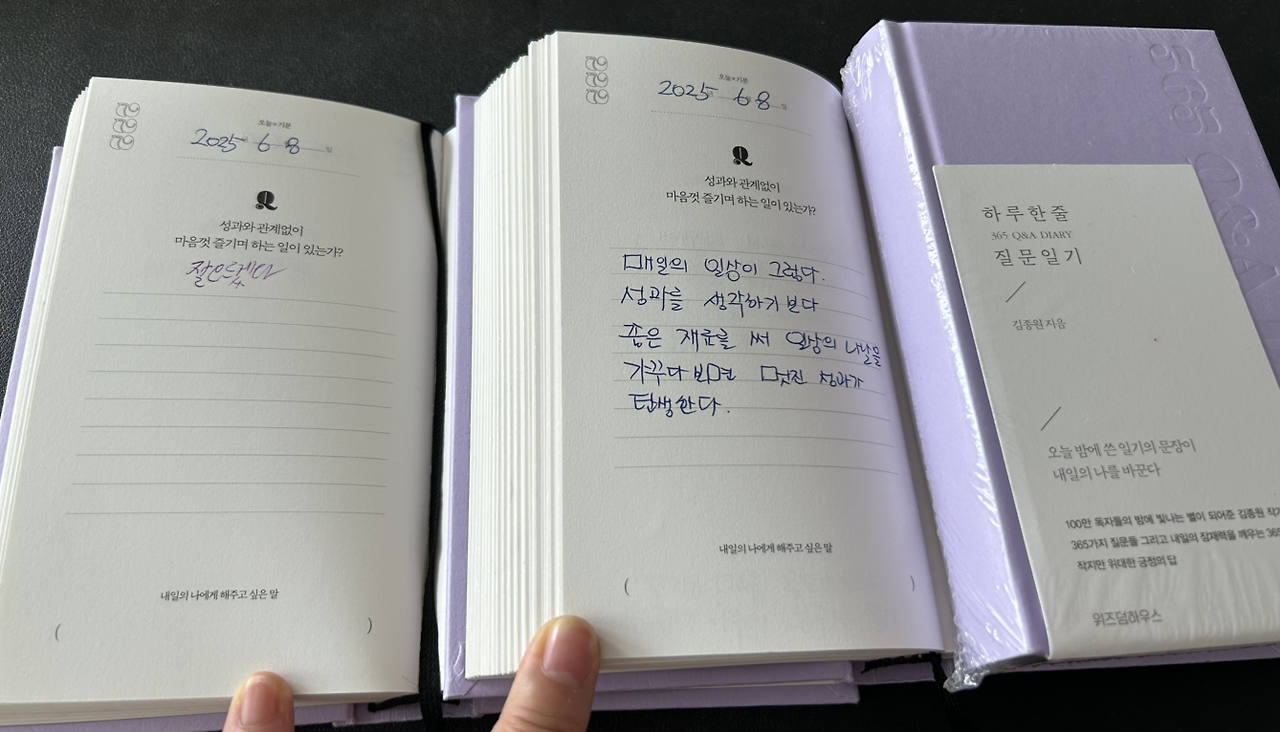 오늘의 기분
2025 6 8 일
Q
성과와 관계없이
마음껏 즐기며 하는 일이 있는가?
잘모르겠다
내일의 나에게 해주고 싶은 말
( )
오늘의 기분
2025 6 8 일
Q
성과와 관계없이
마음껏 즐기며 하는 일이 있는가?
매일의 일상이 그렇다.
성과를 생각하기 보다
좋은 재료를 써 일상의 나날을
가꾸다 보면 멋진 성과가
탄생한다.
내일의 나에게 해주고 싶은 말
( )
365 Q&A
하루 한 줄
365 Q&A DIARY
질문 일기
김종원 지음
오늘 밤에 쓴 일기의 문장이
내일의 나를 바꾼다
100만 독자들의 밤에 빛나는 별이 되어준 김종원 작가
365가지 질문들 그리고 내일의 잠재력을 깨우는 365
작지만 위대한 긍정의 답
위즈덤하우스